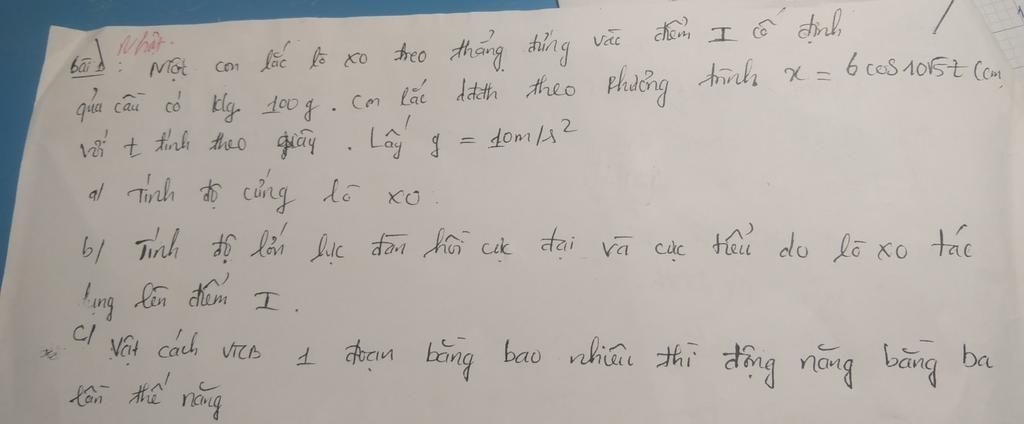 Nhật.
bài 1: Một con lắc lò xo treo thẳng đứng vào điểm I cố định
quả cầu có klg 100g. Con lắc dđđh theo phương trình x = 6cos10√5t (cm
với t tính theo giây. Lấy g = 10m/s²
a/ Tính độ cứng lò xo.
b/ Tính độ lớn lực đàn hồi cực đại và cực tiểu do lò xo tác
dụng lên điểm I.
c/ Vật cách VTCB 1 đoạn bằng bao nhiêu thì động năng bằng ba
lần thế năng